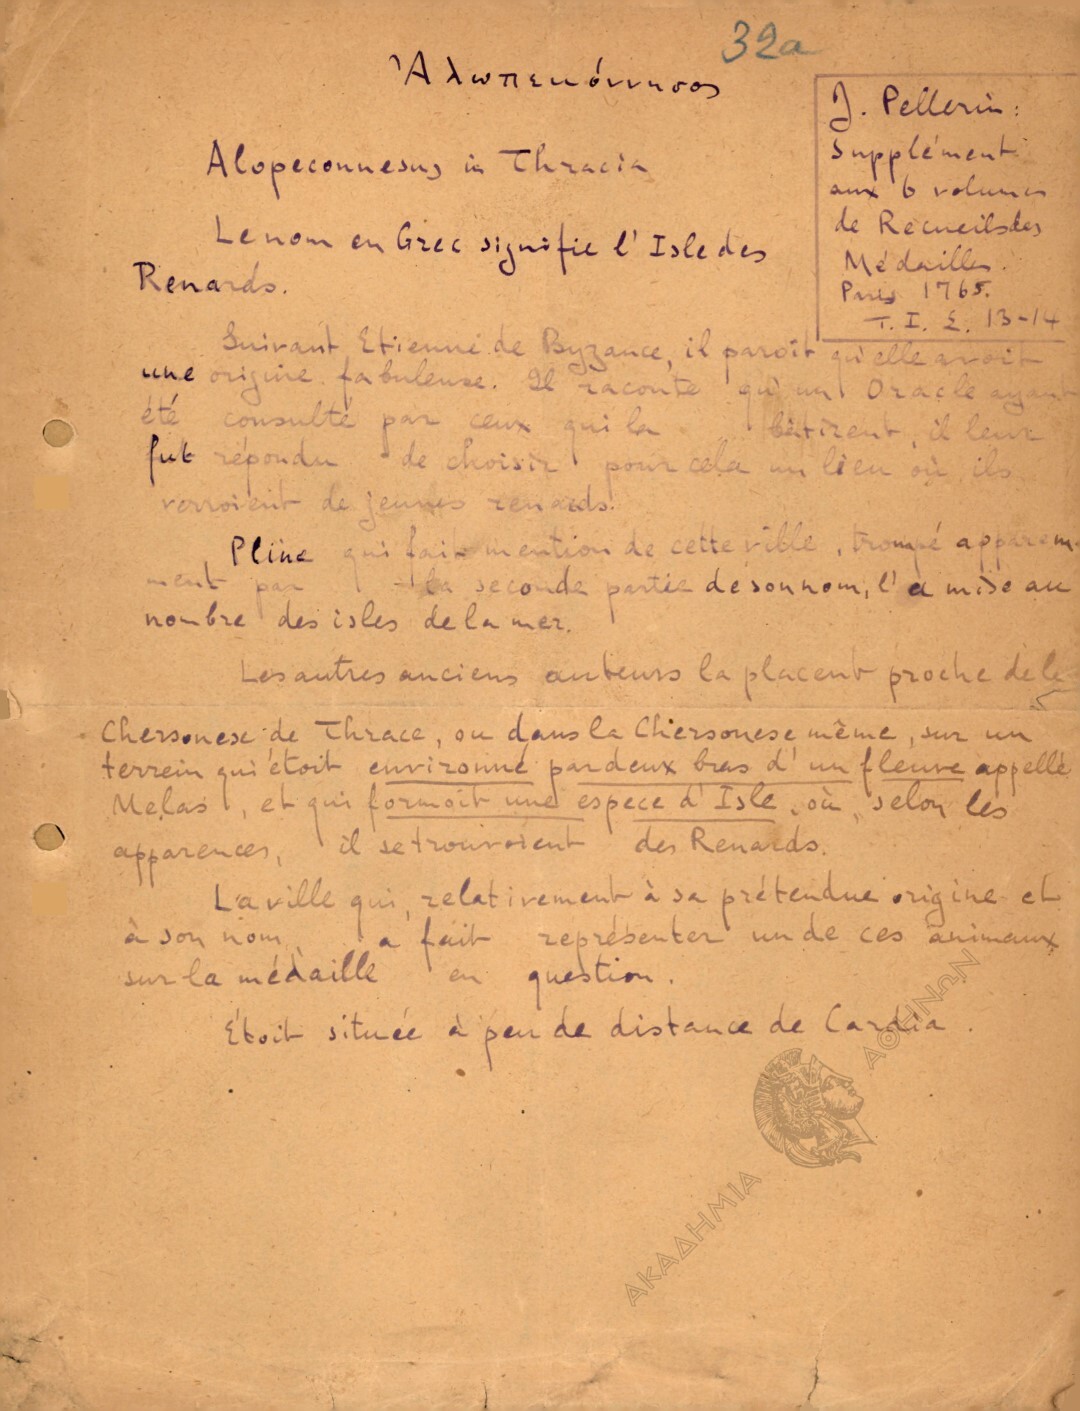 32a
Ἀλωπεκόννησος
J. Pellerin:
Supplément
aux 6 volumes
de Recueils des
Médailles.
Paris 1765.
T. I. Σ. 13-14
Alopeconnesus in Thracia
Le nom en Grec signifie l'Isle des
Renards.
Suivant Etienne de Byzance, il paroît qu'elle avoit
une origine fabuleuse. Il raconte qu'un Oracle ayant
été consulté par ceux qui la bâtirent, il leur
fut répondu de choisir pour cela un lieu où ils
verroient de jeunes renards.
Pline qui fait mention de cette ville, trompé apparem-
ment par la seconde partie de son nom, l'a mise au
nombre des isles de la mer.
Les autres anciens auteurs la placent proche de la
Chersonese de Thrace, ou dans la Chersonese même, sur un
terrein qui étoit environné par deux bras d'un fleuve appellé
Melas, et qui formoit une espece d'Isle, où, selon les
apparences, il se trouvoient des Renards.
La ville qui, relativement à sa prétendue origine et
à son nom, a fait représenter un de ces animaux
sur la médaille en question.
Etoit située à peu de distance de Cardia.
ΑΚΑΔΗΜΙΑ ΑΘΗΝΩΝ